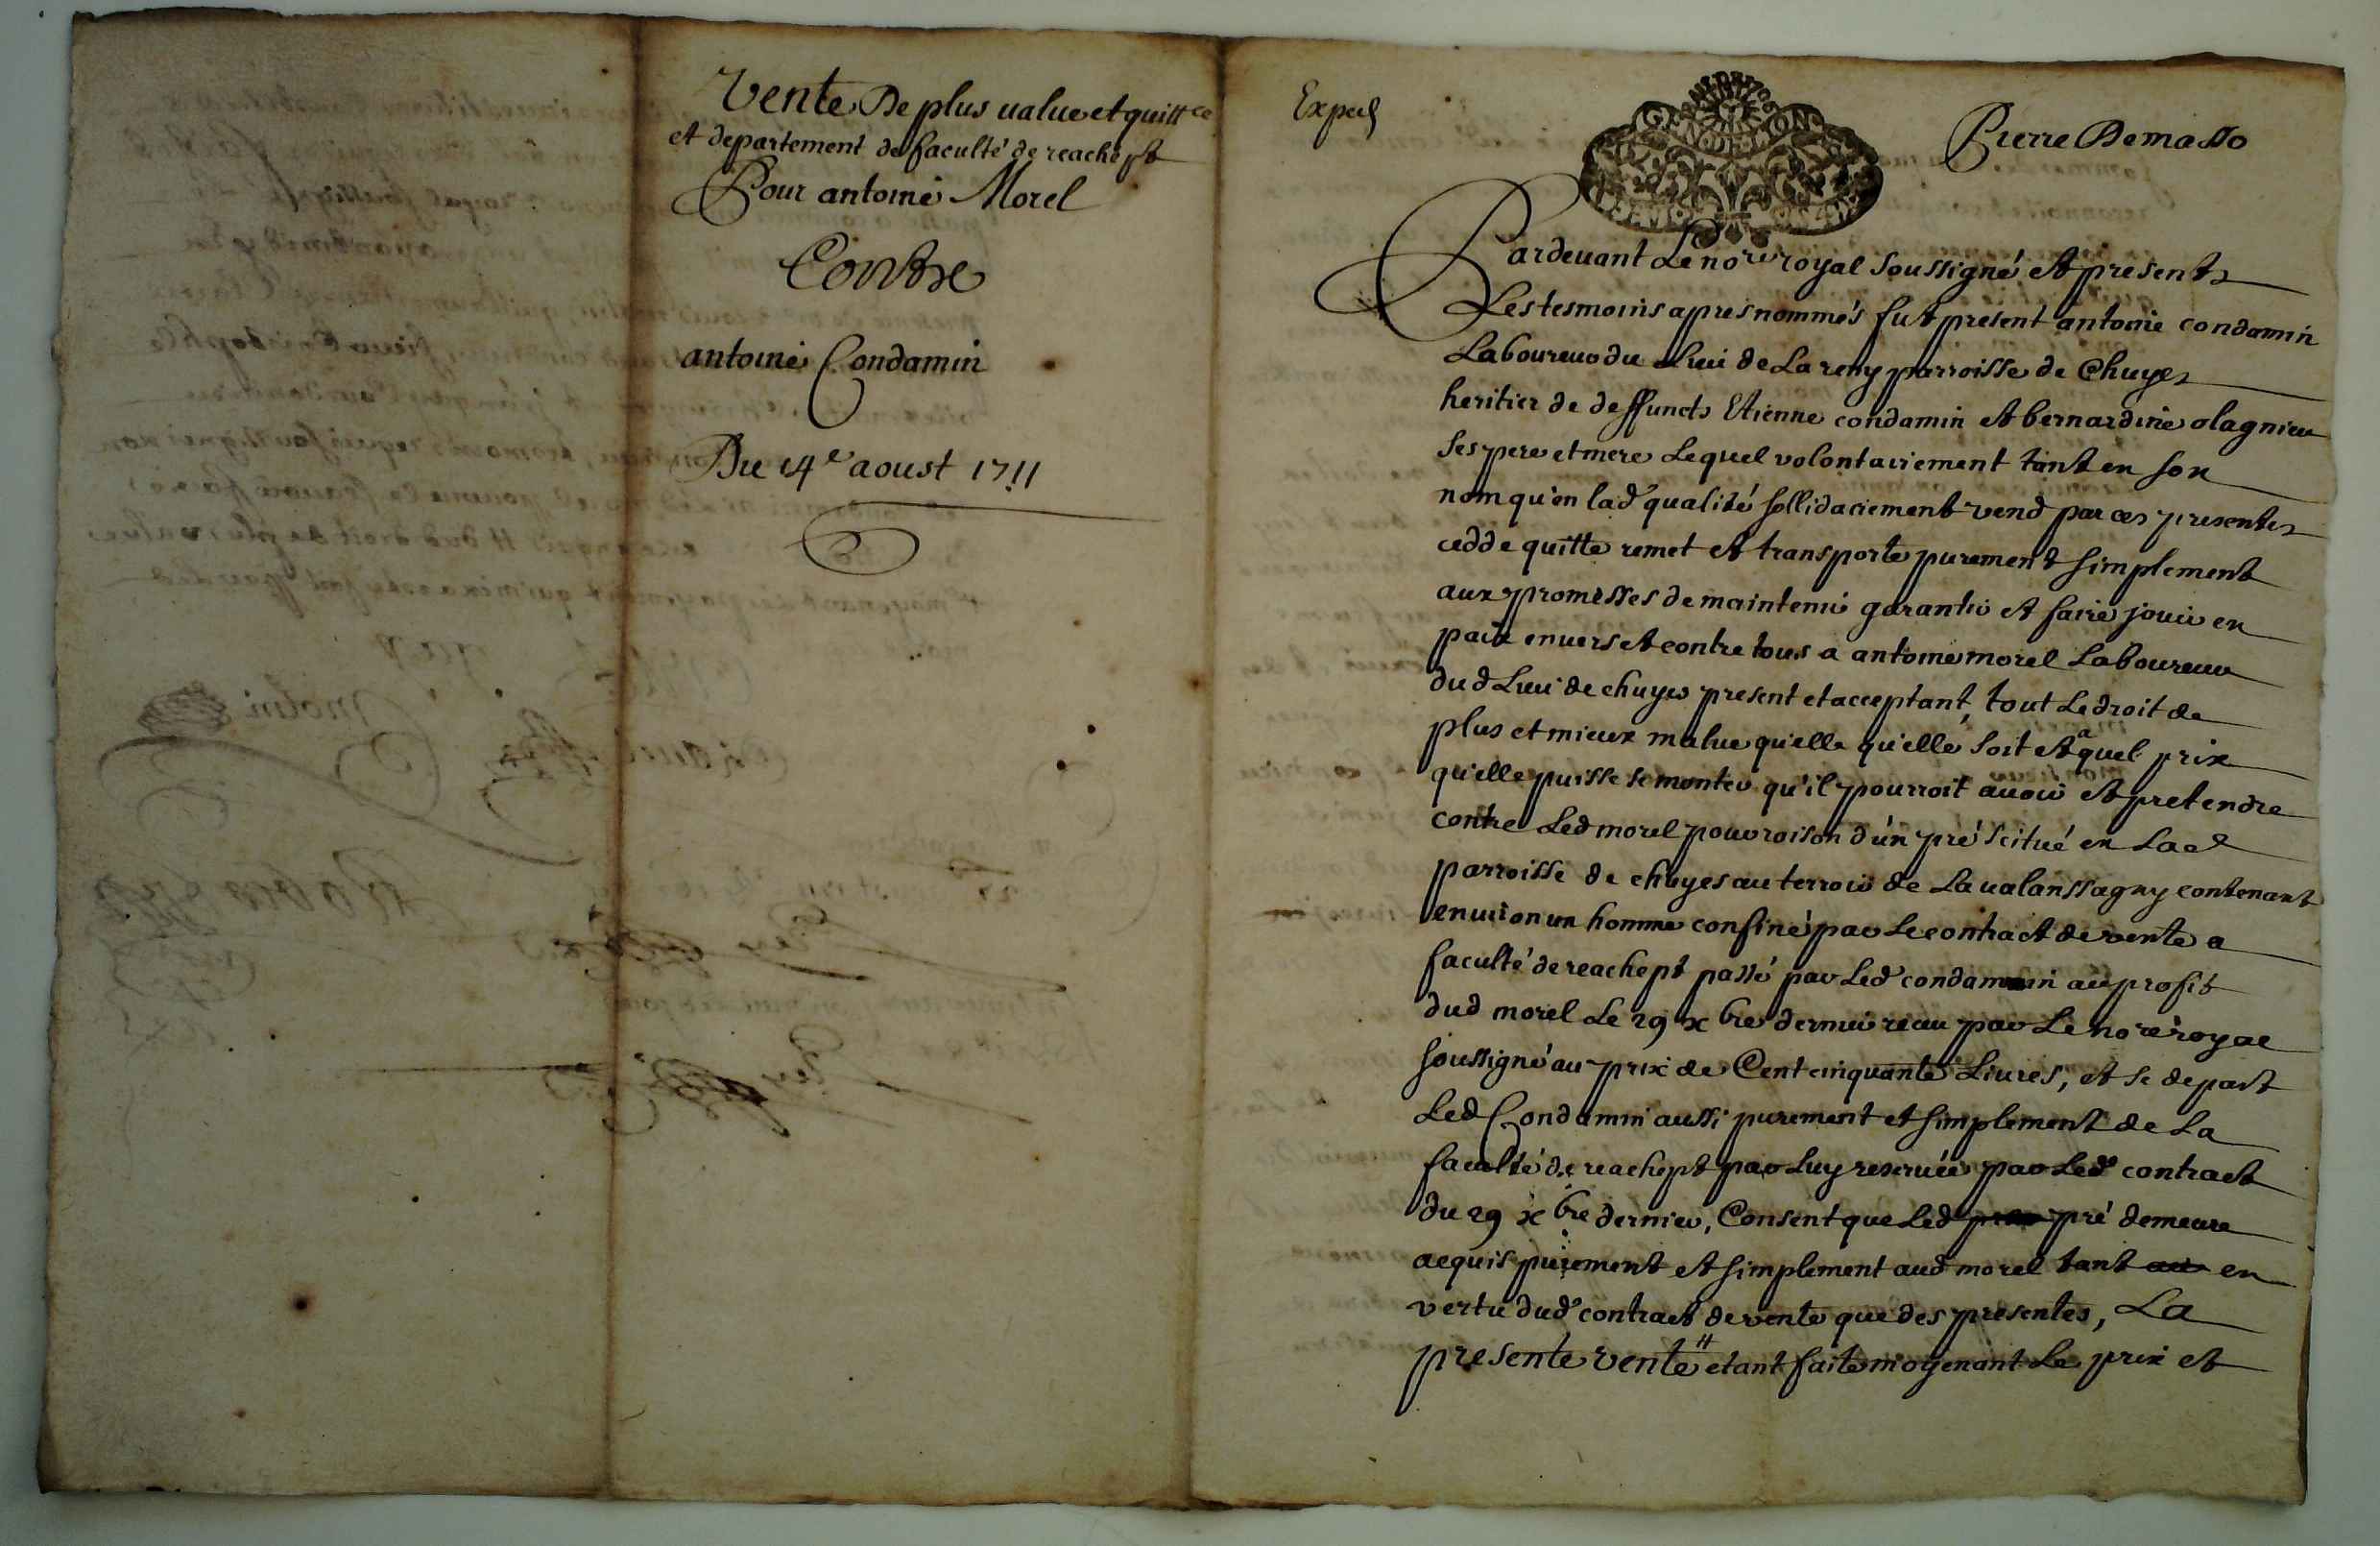 Vente De plus value et quittce
et departement de faculté de reachept
Pour antoine Morel
Contre
antoine Condamin
Du 14e aoust 1711
Exped
Pierre Demasso
GENERALITE
DE LYON
Pardevant Le nore royal soussigné et presents
Les tesmoins apres nommés fut present antoine condamin
Laboureur du Lieu de La reny parroisse de Chuyes
heritier de deffuncts Etienne condamin et bernardine olagnieu
ses pere et mere Lequel volontairement tant en son
nom qu'en lad qualité sollidairement vend par ces presentes
cedde quitte remet et transporte purement simplement
aux promesses de maintenir garantir et faire jouir en
paix envers et contre tous a antoine morel Laboureur
dud Lieu de chuyes present et acceptant, tout Le droit de
plus et mieux malue qu'elle qu'elle soit et a quel prix
qu'elle puisse se monter qu'il pourroit avoir et pretendre
contre Led morel pour raison d'un pré scitué en Lad
parroisse de chuyes au terroir de La valanssagny contenant
environ un homme confiné par Le contract de vente a
faculté de reachept passé par Led condamin au profit
dud morel Le 29 xbre dernier receu par Le nore royal
soussigné au prix de Cent cinquante Livres, et se depart
Led Condamin aussi purement et simplement de La
faculté de reachept par Luy reservée par Led contract
du 29 xbre dernier, Consent que Led pré demeure
acquis purement et simplement aud morel tant en
vertu dud contract de vente que des presentes, La
presente vente # etant faite moyenant Le prix et